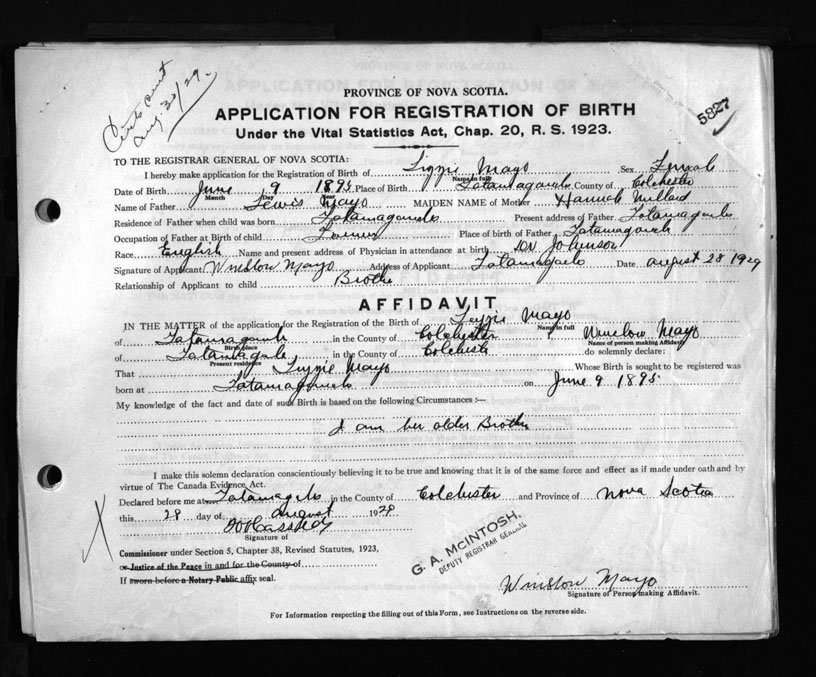 Aug. 30/29.
5827
PROVINCE OF NOVA SCOTIA.
APPLICATION FOR REGISTRATION OF BIRTH
Under the Vital Statistics Act, Chap. 20, R. S. 1923.
TO THE REGISTRAR GENERAL OF NOVA SCOTIA:
I hereby make application for the Registration of Birth of Lizzie Mayo Sex Female
Name in full
Date of Birth June 9 1895 Place of Birth Tatamagouche County of Colchester
Month Day Year
Name of Father Lewis Mayo MAIDEN NAME of Mother Hannah Millard
Residence of Father when child was born Tatamagouche Present address of Father Tatamagouche
Occupation of Father at Birth of child Farmer Place of birth of Father Tatamagouche
Race English Name and present address of Physician in attendance at birth Dr Johnson
Signature of Applicant Winslow Mayo Address of Applicant Tatamagouche Date August 28 1929
Relationship of Applicant to child Brother
AFFIDAVIT
IN THE MATTER of the application for the Registration of the Birth of Lizzie Mayo
Name in full
of Tatamagouche in the County of Colchester Winslow Mayo
Birth place Name of person making Affidavit
of Tatamagouche in the County of Colchester do solemnly declare:
Present residence
That Lizzie Mayo Whose Birth is sought to be registered was
born at Tatamagouche on June 9 1895
My knowledge of the fact and date of such Birth is based on the following Circumstances :—
I am her older Brother
I make this solemn declaration conscientiously believing it to be true and knowing that it is of the same force and effect as if made under oath and by
virtue of The Canada Evidence Act.
Declared before me at Tatamagouche in the County of Colchester and Province of Nova Scotia
this 28 day of August 1929
Signature of
Commissioner under Section 5, Chapter 38, Revised Statutes, 1923,
or Justice of the Peace in and for the County of
If sworn before a Notary Public affix seal.
G. A. McINTOSH,
DEPUTY REGISTRAR GENERAL
Winslow Mayo
Signature of Person making Affidavit.
For Information respecting the filling out of this Form, see Instructions on the reverse side.